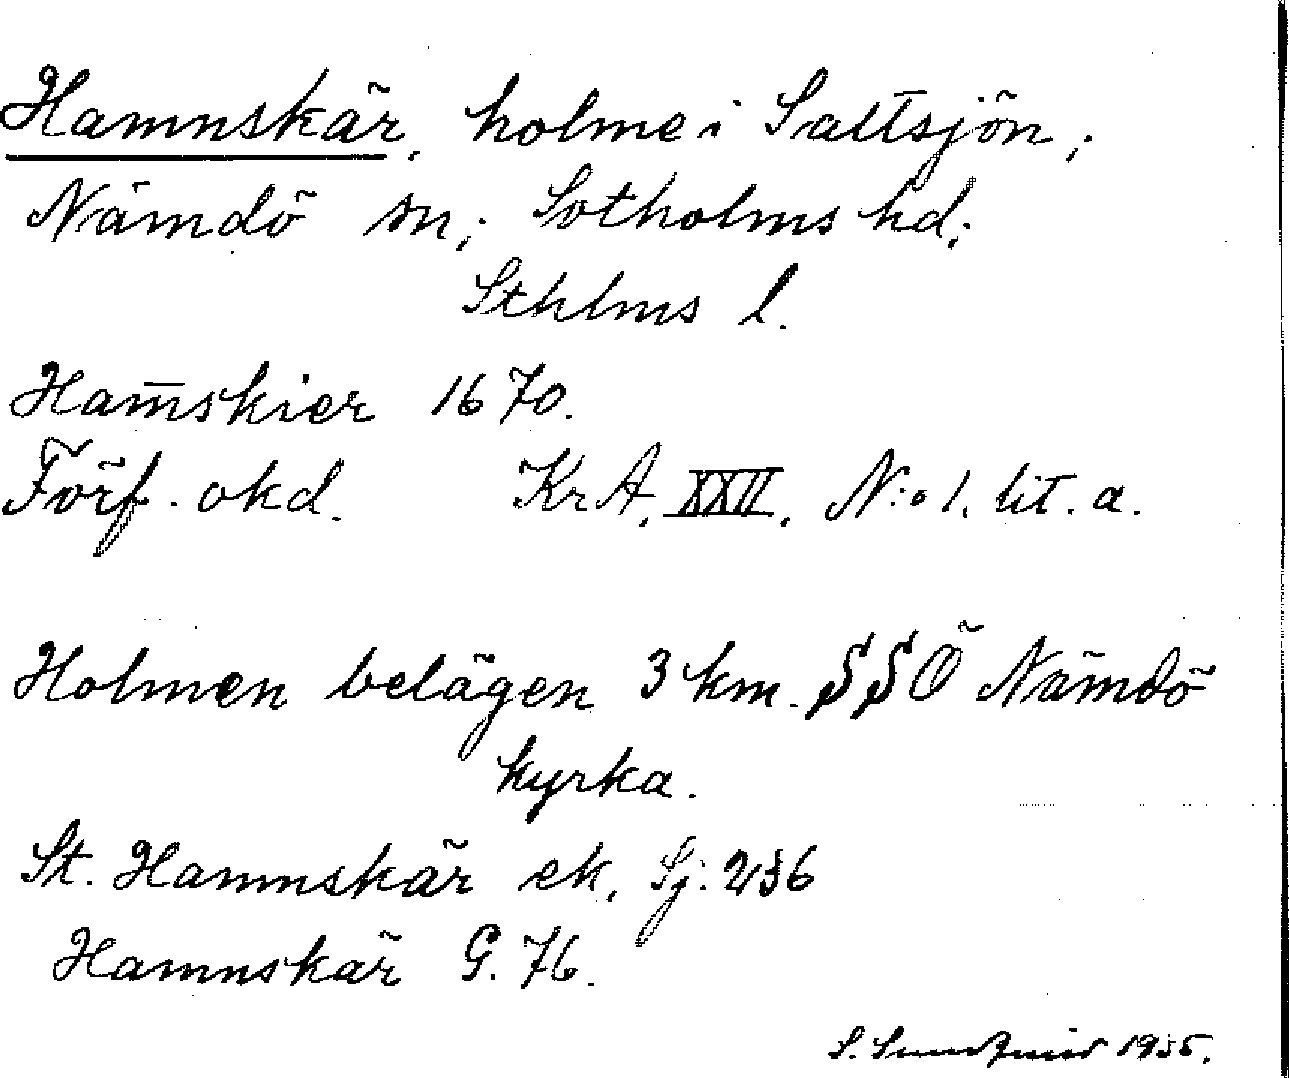 Hamnskär, holme i Saltsjön,
Nämdö sn; Sotholms hd;
Sthlms l.
Ham̅skier 1670.
Förf. okd. KrA, XXII, N:o 1. lit. a.
Holmen belägen 3 km. SSÖ Nämdö
kyrka.
St. Hamnskär ek, Sj: 236
Hamnskär G. 76.
S. 1935.